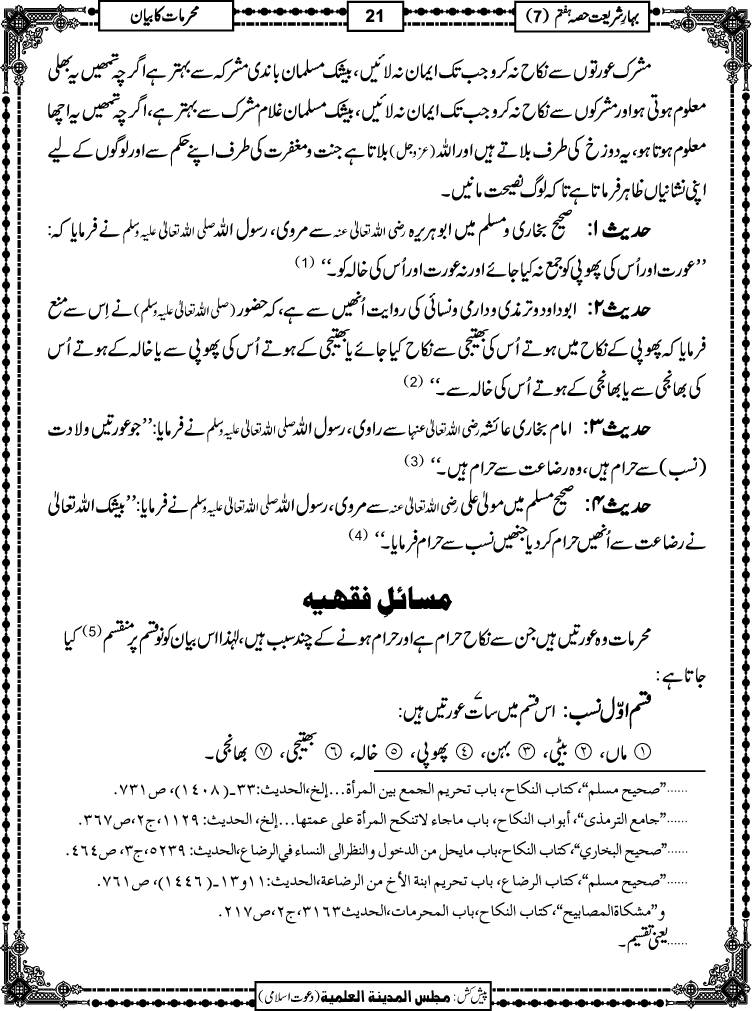 بہارِ شریعت حصہ ہفتم (7)
21
محرمات کا بیان
مشرک عورتوں سے نکاح نہ کرو جب تک ایمان نہ لائیں، بیشک مسلمان باندی مشرکہ سے بہتر ہے اگرچہ تمھیں یہ بھلی
معلوم ہوتی ہو اور مشرکوں سے نکاح نہ کرو جب تک ایمان نہ لائیں، بیشک مسلمان غلام مشرک سے بہتر ہے، اگرچہ تمھیں یہ اچھا
معلوم ہوتا ہو، یہ دوزخ کی طرف بلاتے ہیں اور اللہ (عزوجل) بلاتا ہے جنت و مغفرت کی طرف اپنے حکم سے اور لوگوں کے لیے
اپنی نشانیاں ظاہر فرماتا ہے تاکہ لوگ نصیحت مانیں۔
حدیث ۱: صحیح بخاری و مسلم میں ابوہریرہ رضی اللہ تعالٰی عنہ سے مروی، رسول اللہ صلی اللہ تعالٰی علیہ وسلم نے فرمایا کہ:
’’عورت اور اُس کی پھوپی کو جمع نہ کیا جائے اور نہ عورت اور اُس کی خالہ کو۔‘‘ (1)
حدیث ۲: ابوداود و ترمذی و دارمی و نسائی کی روایت اُنھیں سے ہے، کہ حضور (صلی اللہ تعالٰی علیہ وسلم) نے اِس سے منع
فرمایا کہ پھوپی کے نکاح میں ہوتے اُس کی بھتیجی سے نکاح کیا جائے یا بھتیجی کے ہوتے اُس کی پھوپی سے یا خالہ کے ہوتے اُس
کی بھانجی سے یا بھانجی کے ہوتے اُس کی خالہ سے۔‘‘ (2)
حدیث ۳: امام بخاری عائشہ رضی اللہ تعالٰی عنہا سے راوی، رسول اللہ صلی اللہ تعالٰی علیہ وسلم نے فرمایا: ’’جو عورتیں ولادت
(نسب) سے حرام ہیں، وہ رضاعت سے حرام ہیں۔‘‘ (3)
حدیث ۴: صحیح مسلم میں مولیٰ علی رضی اللہ تعالٰی عنہ سے مروی، رسول اللہ صلی اللہ تعالٰی علیہ وسلم نے فرمایا: ’’بیشک اللہ تعالیٰ
نے رضاعت سے اُنھیں حرام کر دیا جنھیں نسب سے حرام فرمایا۔‘‘ (4)
مسائلِ فقہیہ
محرمات وہ عورتیں ہیں جن سے نکاح حرام ہے اور حرام ہونے کے چند سبب ہیں، لہٰذا اس بیان کو نو قسم پر منقسم (5) کیا
جاتا ہے:
قسم اوّل نسب: اس قسم میں سات ۷ عورتیں ہیں:
① ماں، ② بیٹی، ③ بہن، ④ پھوپی، ⑤ خالہ، ⑥ بھتیجی، ⑦ بھانجی۔
......”صحیح مسلم“، کتاب النکاح، باب تحریم الجمع بین المرأۃ...إلخ،الحدیث:۳۳ـ(۱۴۰۸)، ص۷۳۱.
......”جامع الترمذی“، أبواب النکاح، باب ماجاء لاتنکح المرأۃ علی عمتھا...إلخ، الحدیث: ۱۱۲۹،ج۲،ص۳۶۷.
......”صحیح البخاري“، کتاب النکاح،باب مایحل من الدخول والنظرالی النساء في الرضاع،الحدیث: ۵۲۳۹،ج۳، ص۴۶۴.
......”صحیح مسلم“، کتاب الرضاع، باب تحریم ابنۃ الأخ من الرضاعۃ،الحدیث:۱۱و۱۳ـ(۱۴۴۶)، ص۷۶۱.
و”مشکاۃ المصابیح“، کتاب النکاح،باب المحرمات،الحدیث۳۱۶۳،ج۲،ص۲۱۷.
......یعنی تقسیم۔
پیش کش: مجلس المدینۃ العلمیۃ (دعوتِ اسلامی)